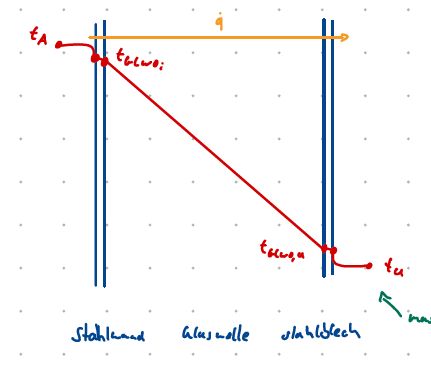 q̇
t_A
t_GLWO,i
t_GLWO,a
t_u
Stahlwand Glaswolle Stahlblech